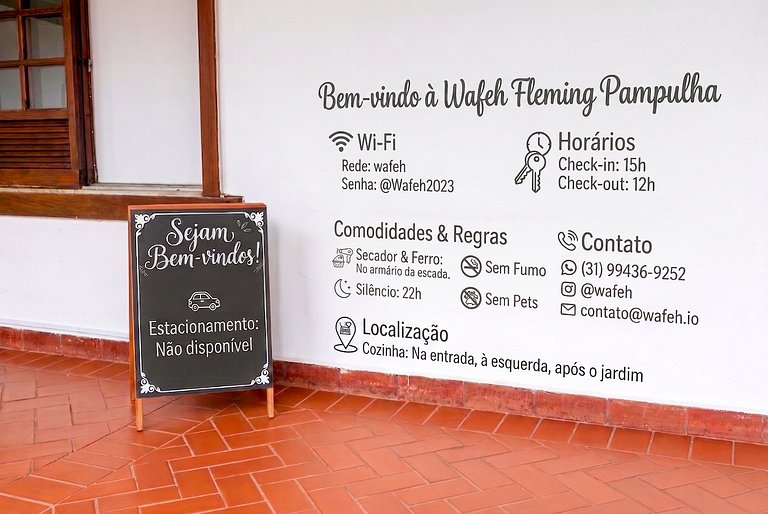 Bem-vindo à Wafeh Fleming Pampulha
Wi-Fi
Rede: wafeh
Senha: @Wafeh2023
Horários
Check-in: 15h
Check-out: 12h
Comodidades & Regras
Secador & Ferro:
No armário da escada.
Silêncio: 22h
Sem Fumo
Sem Pets
Contato
(31) 99436-9252
@wafeh
contato@wafeh.io
Localização
Cozinha: Na entrada, à esquerda, após o jardim
Sejam
Bem-vindos!
Estacionamento:
Não disponível